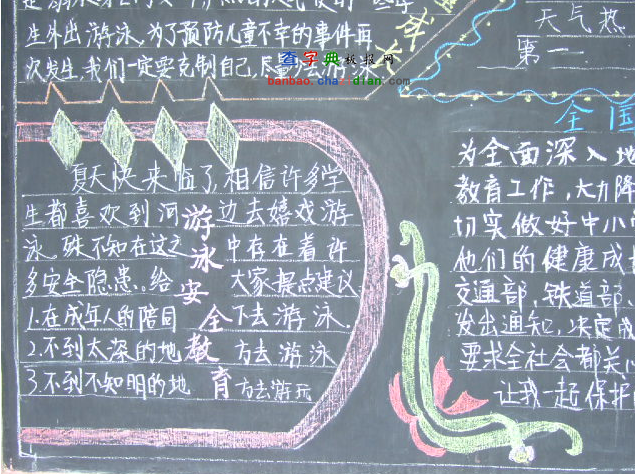 生外出游泳,为了预防儿童不幸的事件再
次发生,我们一定要克制自己,尽
查字典板报网
banbao.chazidian.com
夏天快来临了,相信许多学
生都喜欢到河边去嬉戏游
泳,殊不知在这之中存在着许
多安全隐患。给大家提点建议
1.在成年人的陪同下去游泳.
2.不到太深的地方去游泳
3.不到不知明的地方去游玩
游泳安全教育
天气热
第一
全国
为全面深入地
教育工作,大力降
切实做好中小
他们的健康成
交通部,铁道部、
发出通知,决定
要求全社会都关心
让我一起保护